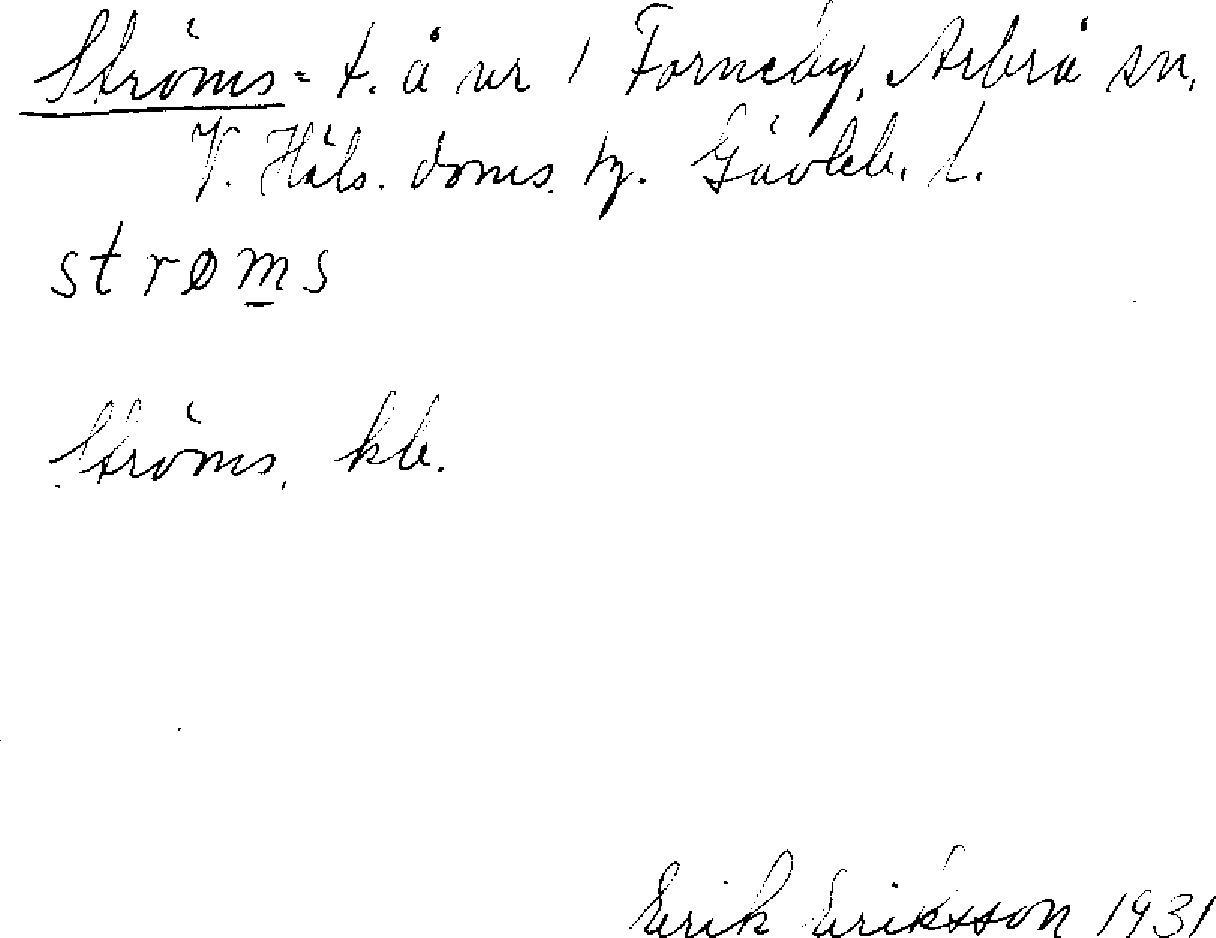 Ströms = t. å nr 1 Forneby, Arbrå sn,
V. Häls. doms. tg. Gävleb. l.
strøms
Ströms, kb.
Erik Eriksson 1931